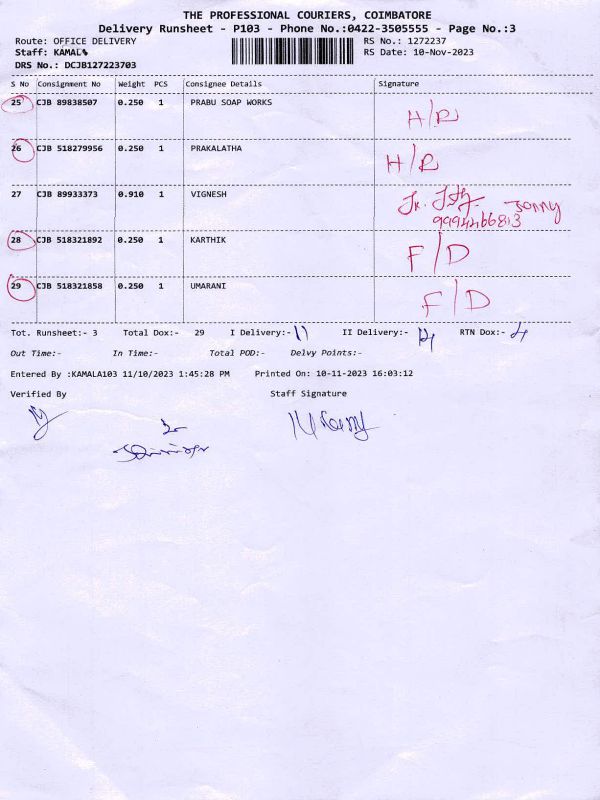 THE PROFESSIONAL COURIERS, COIMBATORE
Delivery Runsheet - P103 - Phone No.:0422-3505555 - Page No.:3
Route: OFFICE DELIVERY RS No.: 1272237
Staff: KAMAL RS Date: 10-Nov-2023
DRS No.: DCJB127223703
S No Consignment No Weight PCS Consignee Details Signature
25 CJB 89838507 0.250 1 PRABU SOAP WORKS H/R
26 CJB 518279956 0.250 1 PRAKALATHA H/R
27 CJB 89933373 0.910 1 VIGNESH
28 CJB 518321892 0.250 1 KARTHIK F/D
29 CJB 518321858 0.250 1 UMARANI F/D
Tot. Runsheet:- 3 Total Dox:- 29 I Delivery:- 11 II Delivery:- 14 RTN Dox:- 4
Out Time:- In Time:- Total POD:- Delvy Points:-
Entered By :KAMALA103 11/10/2023 1:45:28 PM Printed On: 10-11-2023 16:03:12
Verified By Staff Signature